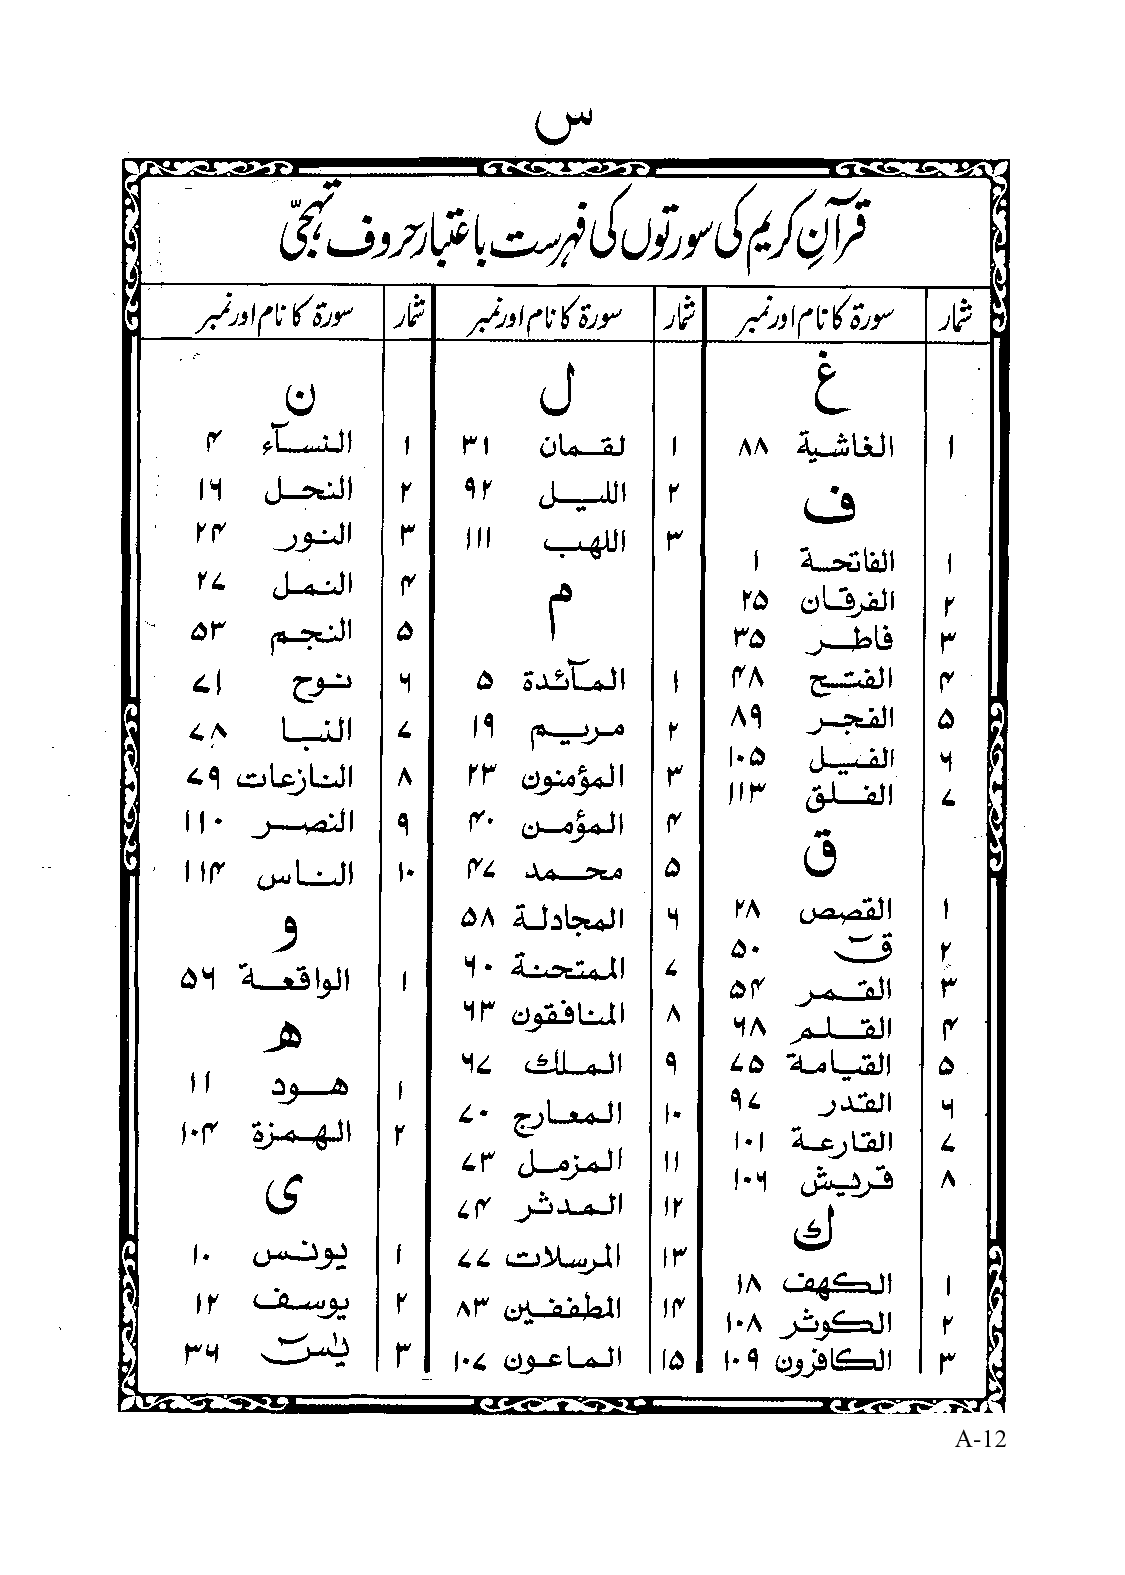 س
قرآنِ کریم کی سورتوں کی فہرست باعتبار حروف تہجّی
شمار سورۃ کا نام اور نمبر
غ
۱ الغاشیة ۸۸
ف
۱ الفاتحة ۱
۲ الفرقان ۲۵
۳ فاطر ۳۵
۴ الفتح ۴۸
۵ الفجر ۸۹
۶ الفیل ۱۰۵
۷ الفلق ۱۱۳
ق
۱ القصص ۲۸
۲ قٓ ۵۰
۳ القمر ۵۴
۴ القلم ۶۸
۵ القیامة ۷۵
۶ القدر ۹۷
۷ القارعة ۱۰۱
۸ قریش ۱۰۶
ك
۱ الكهف ۱۸
۲ الكوثر ۱۰۸
۳ الكافرون ۱۰۹
شمار سورۃ کا نام اور نمبر
ل
۱ لقمان ۳۱
۲ اللیل ۹۲
۳ اللهب ۱۱۱
م
۱ المآئدة ۵
۲ مریم ۱۹
۳ المؤمنون ۲۳
۴ المؤمن ۴۰
۵ محمد ۴۷
۶ المجادلة ۵۸
۷ الممتحنة ۶۰
۸ المنافقون ۶۳
۹ الملك ۶۷
۱۰ المعارج ۷۰
۱۱ المزمل ۷۳
۱۲ المدثر ۷۴
۱۳ المرسلات ۷۷
۱۴ المطففین ۸۳
۱۵ الماعون ۱۰۷
شمار سورۃ کا نام اور نمبر
ن
۱ النسآء ۴
۲ النحل ۱۶
۳ النور ۲۴
۴ النمل ۲۷
۵ النجم ۵۳
۶ نوح ۷۱
۷ النبا ۷۸
۸ النازعات ۷۹
۹ النصر ۱۱۰
۱۰ الناس ۱۱۴
و
۱ الواقعة ۵۶
ھ
۱ هود ۱۱
۲ الهمزة ۱۰۴
ی
۱ یونس ۱۰
۲ یوسف ۱۲
۳ یٰسٓ ۳۶
A-12